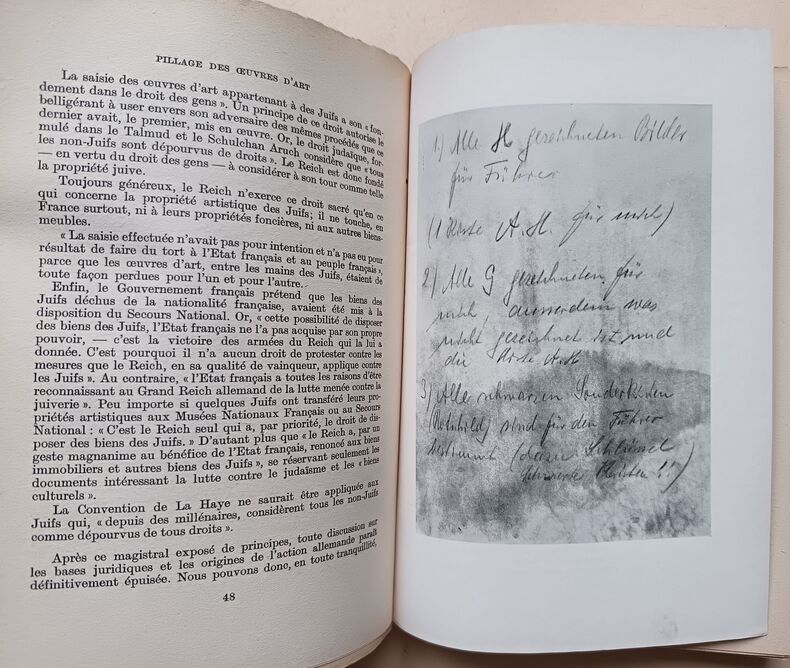 PILLAGE DES ŒUVRES D'ART
La saisie des œuvres d'art appartenant à des Juifs a son « fon-
dement dans le droit des gens ». Un principe de ce droit autorise le
belligérant à user envers son adversaire des mêmes procédés que ce
dernier avait, le premier, mis en œuvre. Or, le droit judaïque, for-
mulé dans le Talmud et le Schulchan Aruch considère que « tous
les non-Juifs sont dépourvus de droits ». Le Reich est donc fondé
— en vertu du droit des gens — à considérer à son tour comme telle
la propriété juive.
Toujours généreux, le Reich n'exerce ce droit sacré qu'en ce
qui concerne la propriété artistique des Juifs; il ne touche, en
France surtout, ni à leurs propriétés foncières, ni aux autres biens-
meubles.
« La saisie effectuée n'avait pas pour intention et n'a pas eu pour
résultat de faire du tort à l'Etat français et au peuple français »,
parce que les œuvres d'art, entre les mains des Juifs, étaient de
toute façon perdues pour l'un et pour l'autre.
Enfin, le Gouvernement français prétend que les biens des
Juifs déchus de la nationalité française, avaient été mis à la
disposition du Secours National. Or, « cette possibilité de disposer
des biens des Juifs, l'Etat français ne l'a pas acquise par son propre
pouvoir, — c'est la victoire des armées du Reich qui la lui a
donnée. C'est pourquoi il n'a aucun droit de protester contre les
mesures que le Reich, en sa qualité de vainqueur, applique contre
les Juifs ». Au contraire, « l'Etat français a toutes les raisons d'être
reconnaissant au Grand Reich allemand de la lutte menée contre la
juiverie ». Peu importe si quelques Juifs ont transféré leurs pro-
priétés artistiques aux Musées Nationaux Français ou au Secours
National : « C'est le Reich seul qui a, par priorité, le droit de dis-
poser des biens des Juifs. » D'autant plus que « le Reich a, par un
geste magnanime au bénéfice de l'Etat français, renoncé aux biens
immobiliers et autres biens des Juifs », se réservant seulement les
documents intéressant la lutte contre le judaïsme et les « biens
culturels ».
La Convention de La Haye ne saurait être appliquée aux
Juifs qui, « depuis des millénaires, considèrent tous les non-Juifs
comme dépourvus de tous droits ».
Après ce magistral exposé de principes, toute discussion sur
les bases juridiques et les origines de l'action allemande paraît
définitivement épuisée. Nous pouvons donc, en toute tranquillité,
48
1) Alle H gezeichneten Bilder
für Führer
(1 Kiste A.H. für mich)
2) Alle G gezeichneten für
mich, ausserdem was
nicht gezeichnet ist und
die Kiste A.H
3) Alle schwarzen Sonderkisten
(Rothschild) sind für den Führer
bestimmt (dazu Schlüssel
schwarze Kisten !!)